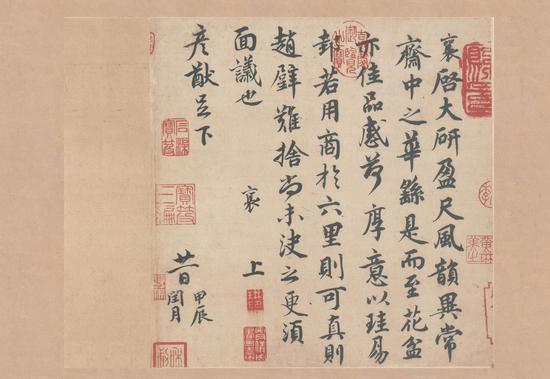 襄啓大研盈尺風韻異常
齋中之華繇是而至花盆
亦佳品感荷厚意以珪易
邽若用商於六里則可真則
趙璧難捨尚未決之更須
面議也 襄上
彥猷足下
廿一日甲辰閏月